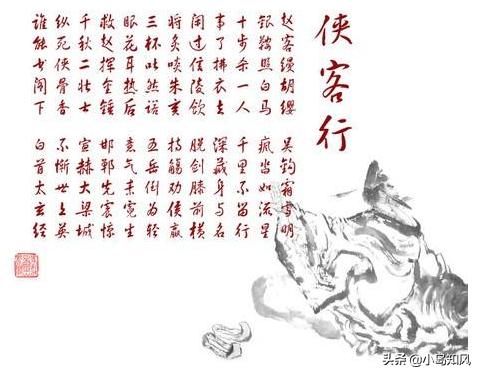 侠客行
赵客缦胡缨 吴钩霜雪明
银鞍照白马 飒沓如流星
十步杀一人 千里不留行
事了拂衣去 深藏身与名
闲过信陵饮 脱剑膝前横
将炙啖朱亥 持觞劝侯嬴
三杯吐然诺 五岳倒为轻
眼花耳热后 意气素霓生
救赵挥金锤 邯郸先震惊
千秋二壮士 宣赫大梁城
纵死侠骨香 不惭世上英
谁能书阁下 白首太玄经
头条 @小鸟知风